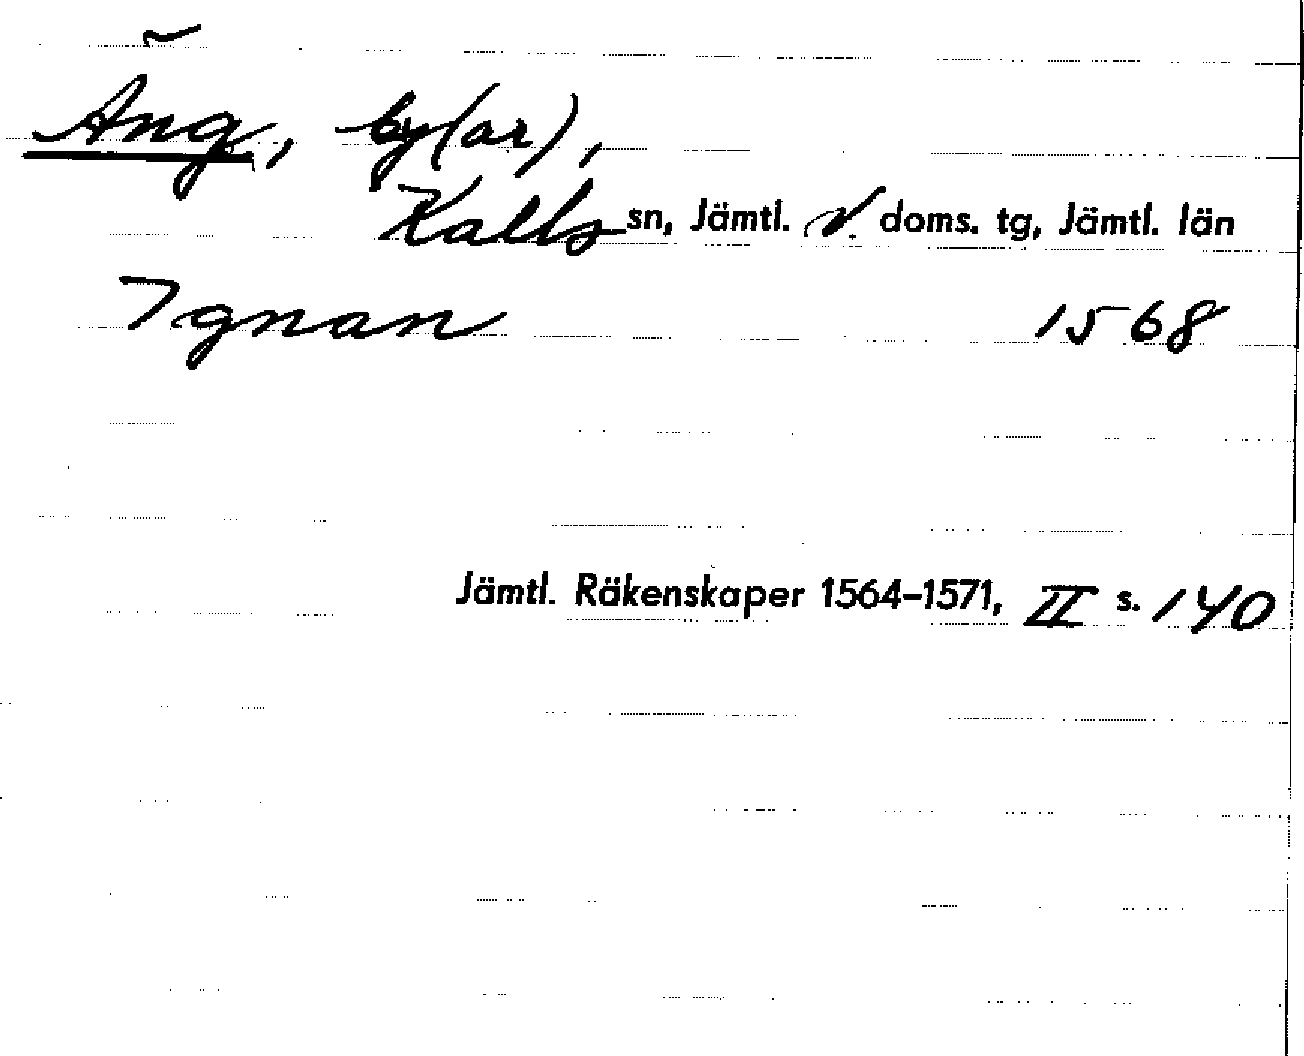 Äng, by(ar),
Kalls sn, Jämtl. v. doms. tg, Jämtl. län
Ignan 1568
Jämtl. Räkenskaper 1564–1571, II s. 140